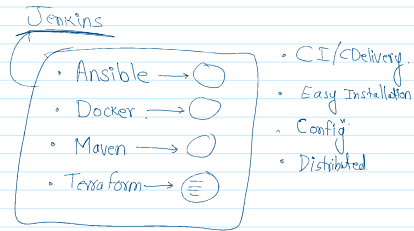 Jenkins
• Ansible →
• Docker. →
• Maven →
• Terraform →
• CI/CDelivery.
• Easy Installation
• Config
• Distributed